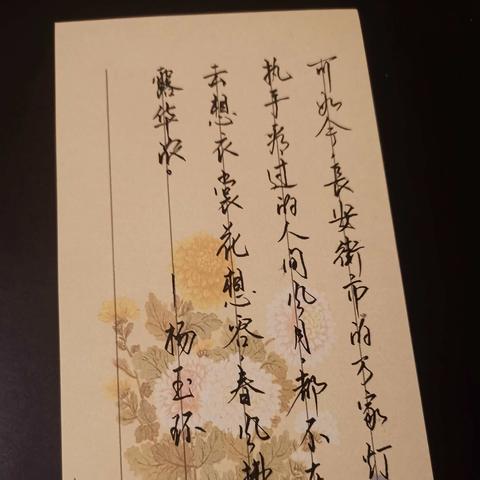 可如今長安街市的万家灯
执手看过的人间风月都不在
云想衣裳花想容春风拂
露华浓。
—杨玉环